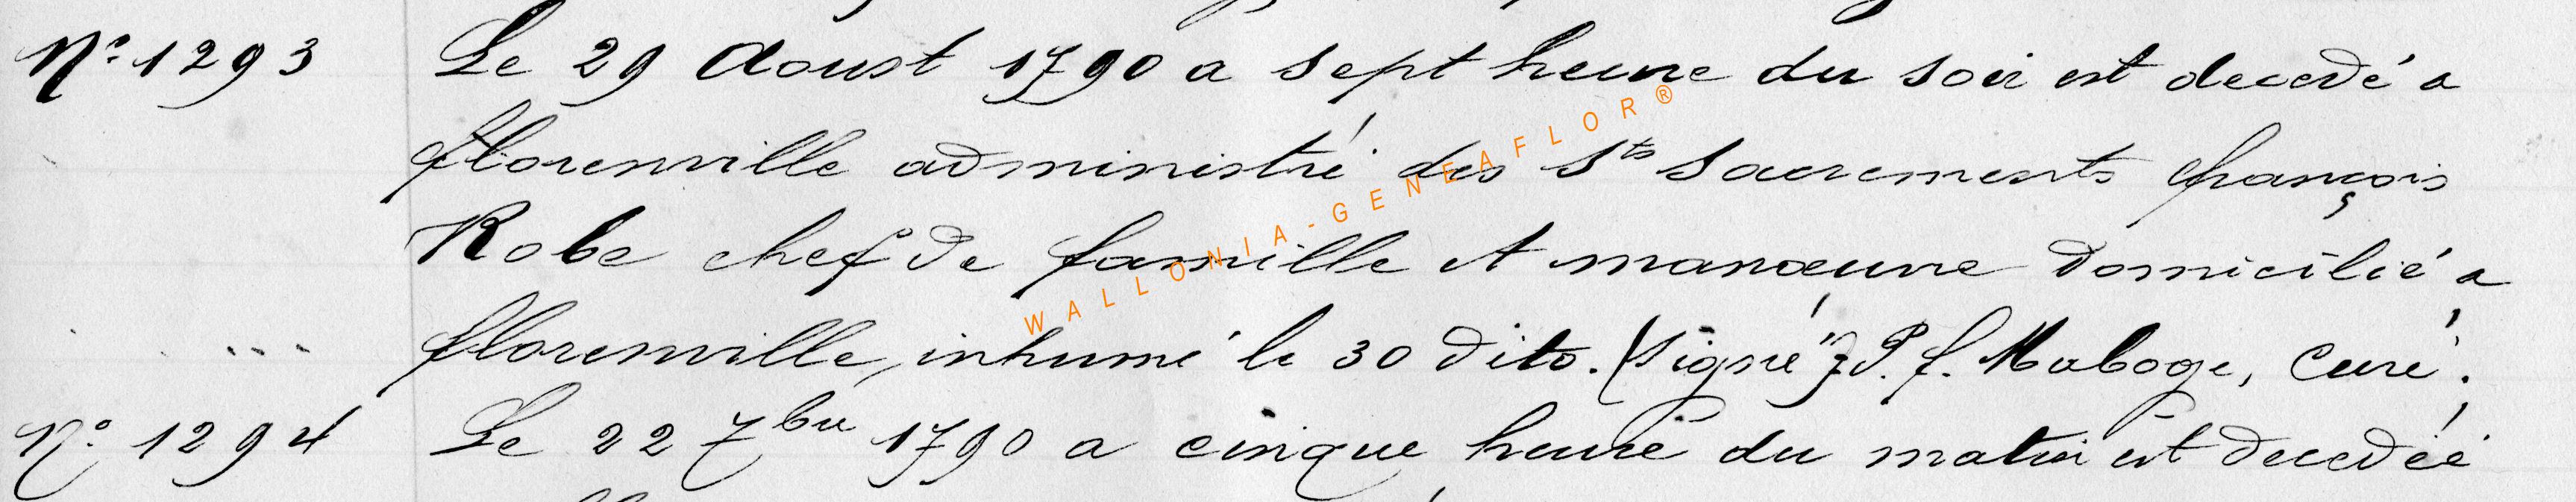 N° 1293 Le 29 Aoust 1790 a sept heure du soir est decedé a
florenville administré des Sts Sacrements françois
Robe chef de famille et manœuvre domicilié a
florenville, inhumé le 30 dito. (signé) P. f. Maboge, Curé.
N° 1294 Le 22 7bre 1790 a cinque heure du matin est decedéé
WALLONIA-GENEAFLOR®